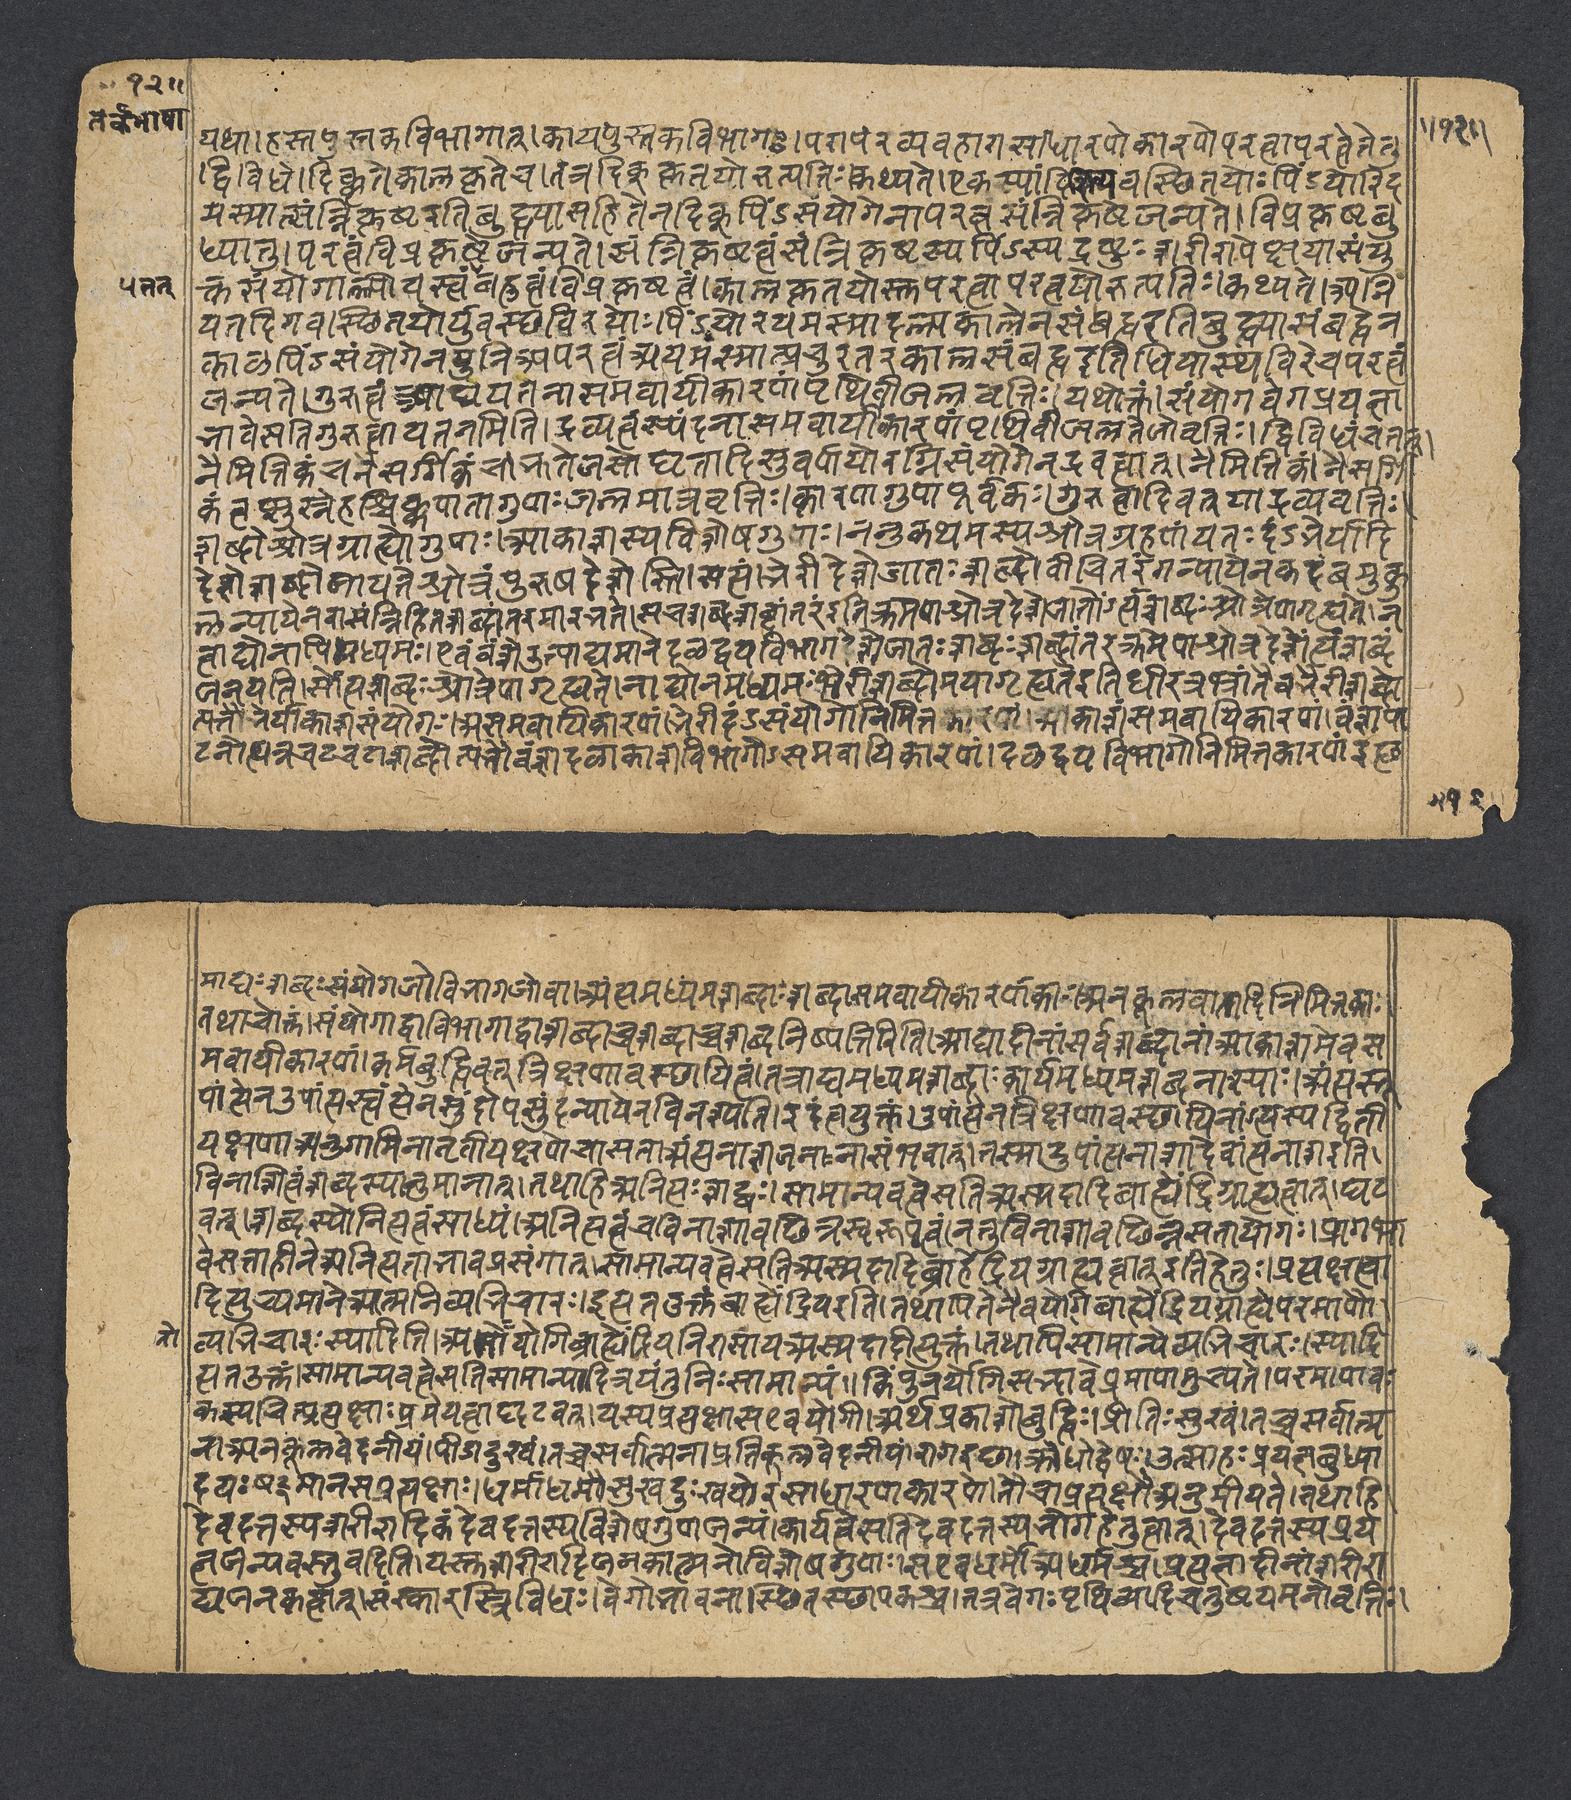 १२॥
तर्कभाषा
॥१२॥
यथा।हस्तपुस्तकविभागात्।कायपुस्तकविभागः।परापरव्यवहारासाधारणेकारणेपरत्वापरत्वेतेतु
।द्विविधे।दिक्कृतेकालकृतेच।तत्रदिक्कृतयोरुत्पत्तिः।कथ्यते।एकस्यांदिश्यवस्छितयोः पिंडयोरिद
मस्मात्संन्निकृष्टइतिबुद्ध्यासहितेनदिक्पिंडसंयोगेनापरत्वसंन्निकृष्टेजन्यते।विप्रकृष्टबु
ध्यातु।परत्वंविप्रकृष्टेजन्यते।संन्निकृष्टत्वंसंन्निकृष्टस्यपिंडस्यद्रष्टुःशरीरापेक्षयासंयु
क्तसंयोगाल्पीयस्त्वंबहुत्वंविप्रकृष्टत्वं।कालकृतयोस्तुपरत्वापरत्वयोरुत्पत्तिः।कथ्यते।अनि
यतदिगवस्छितयोर्युवस्छविरयोः।पिंडयोरयमस्मादल्पकालेनसंबद्धइतिबुद्ध्यासंबद्धेन
काळपिंडसंयोगेनयुनिअपरत्वंअयमस्मात्प्रचुरतरकालसंबद्धइतिधियास्थविरेचपरत्वं
जन्यते।गुरुत्वंआद्यपतनासमवायीकारणंपृथिवीजलवृत्तिः।यथोक्तं।संयोगवेगप्रयत्ना
भावेसतिगुरुत्वात्पतनमिति।द्रव्यत्वंस्यंदनासमवायीकारणंपृथिवीजलतेजोवृत्तिः।द्विविधंचतत्।
नैमित्तिकंचनैसर्गिकंच।तेजसोघृतादिसुवर्णयोरग्निसंयोगेनद्रवत्वात्।नैमित्तिकं।नैसर्गि
कंत्वप्सुस्नेहश्चिक्कणतागुणः जलमात्रवृत्तिः।कारणगुणपूर्वकः।गुरुत्वादिवत्याद्रव्यवृत्तिः।
शब्दोश्रोत्रग्राह्योगुणः।आकाशस्यविशेषगुणः।ननुकथमस्यश्रोत्रग्रहणंयतः दंडभेर्यादि
देशेशब्दोजायतेश्रोत्रंपुरुषदेशेस्ति।सत्यं।भेरीदेशेजातः शब्दोवीचितरंगन्यायेनकदंबमुकु
लन्यायेनवासंन्निहितशब्दांतरमारभते।सचशब्दशब्दांतरंइतिक्रमेणश्रोत्रदेशेजातोंऽत्यशब्दः श्रोत्रेणगृह्यते।न
त्वाद्योनापिमध्यमः।एवंवंशेउत्पाद्यमानेदळद्वयविभागदेशेजातः शब्दः शब्दांतरक्रमेणश्रोत्रदेशेंत्यंशब्दं
जनयति।सोंत्यशब्दः श्रोत्रेणगृह्यते।नाद्योनमध्यमः भेरीशब्दोमयागृह्यतेइतिधीस्तुभ्रांतैव।भेरीशब्दो
त्पत्तौभेर्याकाशसंयोगः।असमवायिकारणं।भेरीदंडसंयोगोनिमित्तकारणं।आकाशंसमवायिकारणं।वंशपा
टनोत्पन्नचटचटाशब्दोत्पत्तौवंशदळाकाशविभागोऽसमवायिकारणं।दळद्वयविभागोनिमित्तकारणंइछ
१२
माद्यः शब्दः संयोगजोविभागजोवा।अंत्यमध्यमशब्दाः शब्दासमवायीकारणकाः।अनकूलवातादिनिमित्तकाः
तथाचोक्तं।संयोगाद्वाविभागाद्वाशब्दाच्चशब्दाच्चशब्दनिष्पत्तिरिति।आद्यादीनांसर्वशब्दानांआकाशमेवस
मवायीकारणं।कर्मबुद्धिवत्त्रिक्षणावस्छायित्वं।तत्राद्यमध्यमशब्दाः कार्यमध्यमशब्दनाश्याः।अंत्यस्तु
पांत्येनउपांत्यस्त्वंत्येनसुंदोपसुंदन्यायेनविनश्यति।इदंत्वयुक्तं।उपांत्येनत्रिक्षणावस्छायिनांत्यस्यद्विती
यक्षणाअनुगामिनातृतीयक्षणेचासताअंत्यनाशजनानासंभवात्।तस्मादुपांत्यनाशादेवांत्यनाशइति।
विनाशित्वंशब्दस्यानुमानात्।तथाहिअनित्यः शब्दः।सामान्यवत्वेसतिअस्मदादिबाह्येंद्रिग्राह्यत्वात्।घट
वत्।शब्दस्योनित्यत्वंसाध्यं।अनित्यत्वंचविनाशावछिन्नस्वरूपत्वं।नतुविनाशावछिन्नसतायोगः।प्रागभा
वेसत्ताहीनेअनित्यताभावप्रसंगात्।सामान्यवत्वेसतिअस्मदादिबाह्येंद्रियग्राह्यत्वात्इतिहेतुः।प्रत्यक्षत्वा
दित्युच्यमानेआत्मनिव्यभिचारः।इत्यतउक्तंबाह्येंद्रियइति।तथापितेनैवयोगिबाह्येंद्रियग्राह्येपरमाणौ
व्यभिचारः स्यादिति।अतोयोगिबाह्येंद्रियनिरासायअस्मदादीत्युक्तं।तथापिसामान्येव्यभिचारः।स्यादि
त्यतउक्तं।सामान्यवत्वेसतिसामान्यादित्रयंतुनिः सामान्यं॥किंपुनर्योगिसद्भावेप्रमाणमुच्यते।परमाणवः
कस्यचित्प्रत्यक्षाः प्रमेयत्वाद्घटवत्।यस्यप्रत्यक्षास एवयोगी।अर्थप्रकाशोबुद्धिः।प्रीतिः सुखं।तच्चसर्वात्म
नाअनकूलवेदनीयं।पीडादुखं।तच्चसर्वात्मनाप्रतिकूलवेदनीयं।रागइछा।क्रोधोद्वेषः।उत्साहः प्रयत्नबुध्या
दयः षट्मानसप्रत्यक्षाः।धर्माधर्मौसुखदुःखयोरसाधारणकारणे।तौचाप्रत्यक्षौअनुमीयते।तथाहि
देवदत्तस्यशरीरादिकंदेवदत्तस्यविशेषगुणजन्यं।कार्यत्वेसतिदेवदत्तस्यभोगहेतुत्वात्।देवदत्तस्यप्रय
त्नजन्यवस्तुवदिति।यस्तुशरीरादिजनकात्मनोविशेषगुणः।सएवधर्मोअधर्मश्च।प्रयत्नादीनांशरीरा
द्यजनकत्वात्।संस्कारस्त्रिविधः।वेगोभावना।स्छितस्छापकश्च।तत्रवेगः पृथिव्यादिचतुष्टयमनोवृत्तिः।